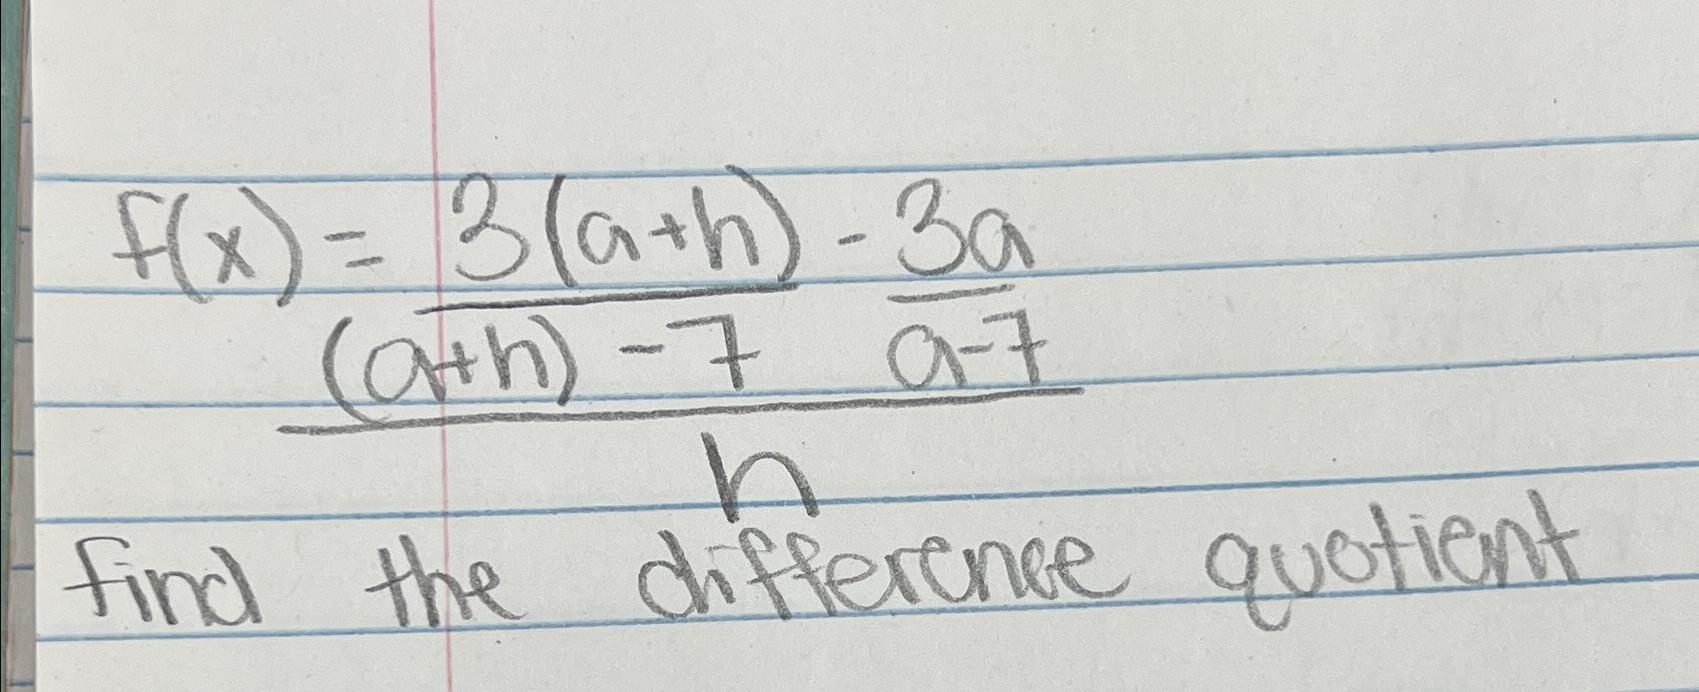 f(x) = 3(a+h) - 3a
(a+h) - 7 a-7
h
find the difference quotient